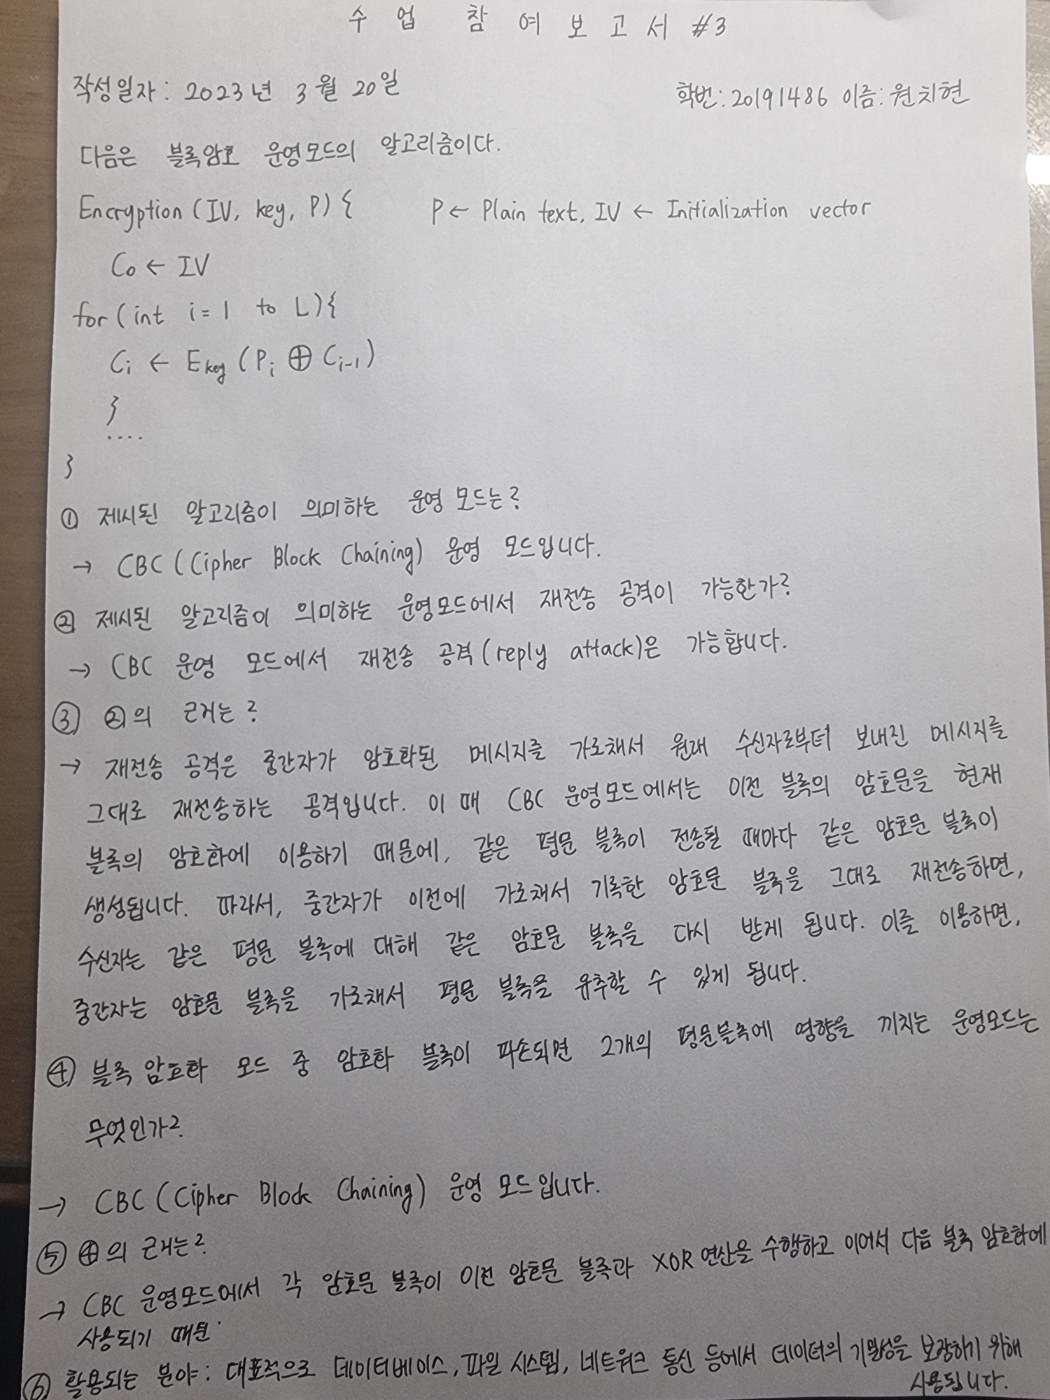 수 업 참 여 보 고 서 #3
작성일자 : 2023년 3월 20일 학번 : 20191486 이름 : 원치현
다음은 블록암호 운영모드의 알고리즘이다.
Encryption (IV, key, P) { P ← Plain text, IV ← Initialization vector
C₀ ← IV
for (int i = 1 to L) {
Cᵢ ← E_key (Pᵢ ⊕ Cᵢ₋₁)
}
....
}
① 제시된 알고리즘이 의미하는 운영 모드는?
→ CBC (Cipher Block Chaining) 운영 모드입니다.
② 제시된 알고리즘이 의미하는 운영모드에서 재전송 공격이 가능한가?
→ CBC 운영 모드에서 재전송 공격(reply attack)은 가능합니다.
③ ②의 근거는?
→ 재전송 공격은 중간자가 암호화된 메시지를 가로채서 원래 수신자로부터 보내진 메시지를
그대로 재전송하는 공격입니다. 이 때 CBC 운영모드에서는 이전 블록의 암호문을 현재
블록의 암호화에 이용하기 때문에, 같은 평문 블록이 전송될 때마다 같은 암호문 블록이
생성됩니다. 따라서, 중간자가 이전에 가로채서 기록한 암호문 블록을 그대로 재전송하면,
수신자는 같은 평문 블록에 대해 같은 암호문 블록을 다시 받게 됩니다. 이를 이용하면,
중간자는 암호문 블록을 가로채서 평문 블록을 유추할 수 있게 됩니다.
④ 블록 암호화 모드 중 암호화 블록이 파손되면 2개의 평문블록에 영향을 끼치는 운영모드는
무엇인가?
→ CBC (Cipher Block Chaining) 운영 모드입니다.
⑤ ④의 근거는?
→ CBC 운영모드에서 각 암호문 블록이 이전 암호문 블록과 XOR 연산을 수행하고 이어서 다음 블록 암호화에
사용되기 때문.
⑥ 활용되는 분야 : 대표적으로 데이터베이스, 파일 시스템, 네트워크 통신 등에서 데이터의 기밀성을 보장하기 위해
사용됩니다.